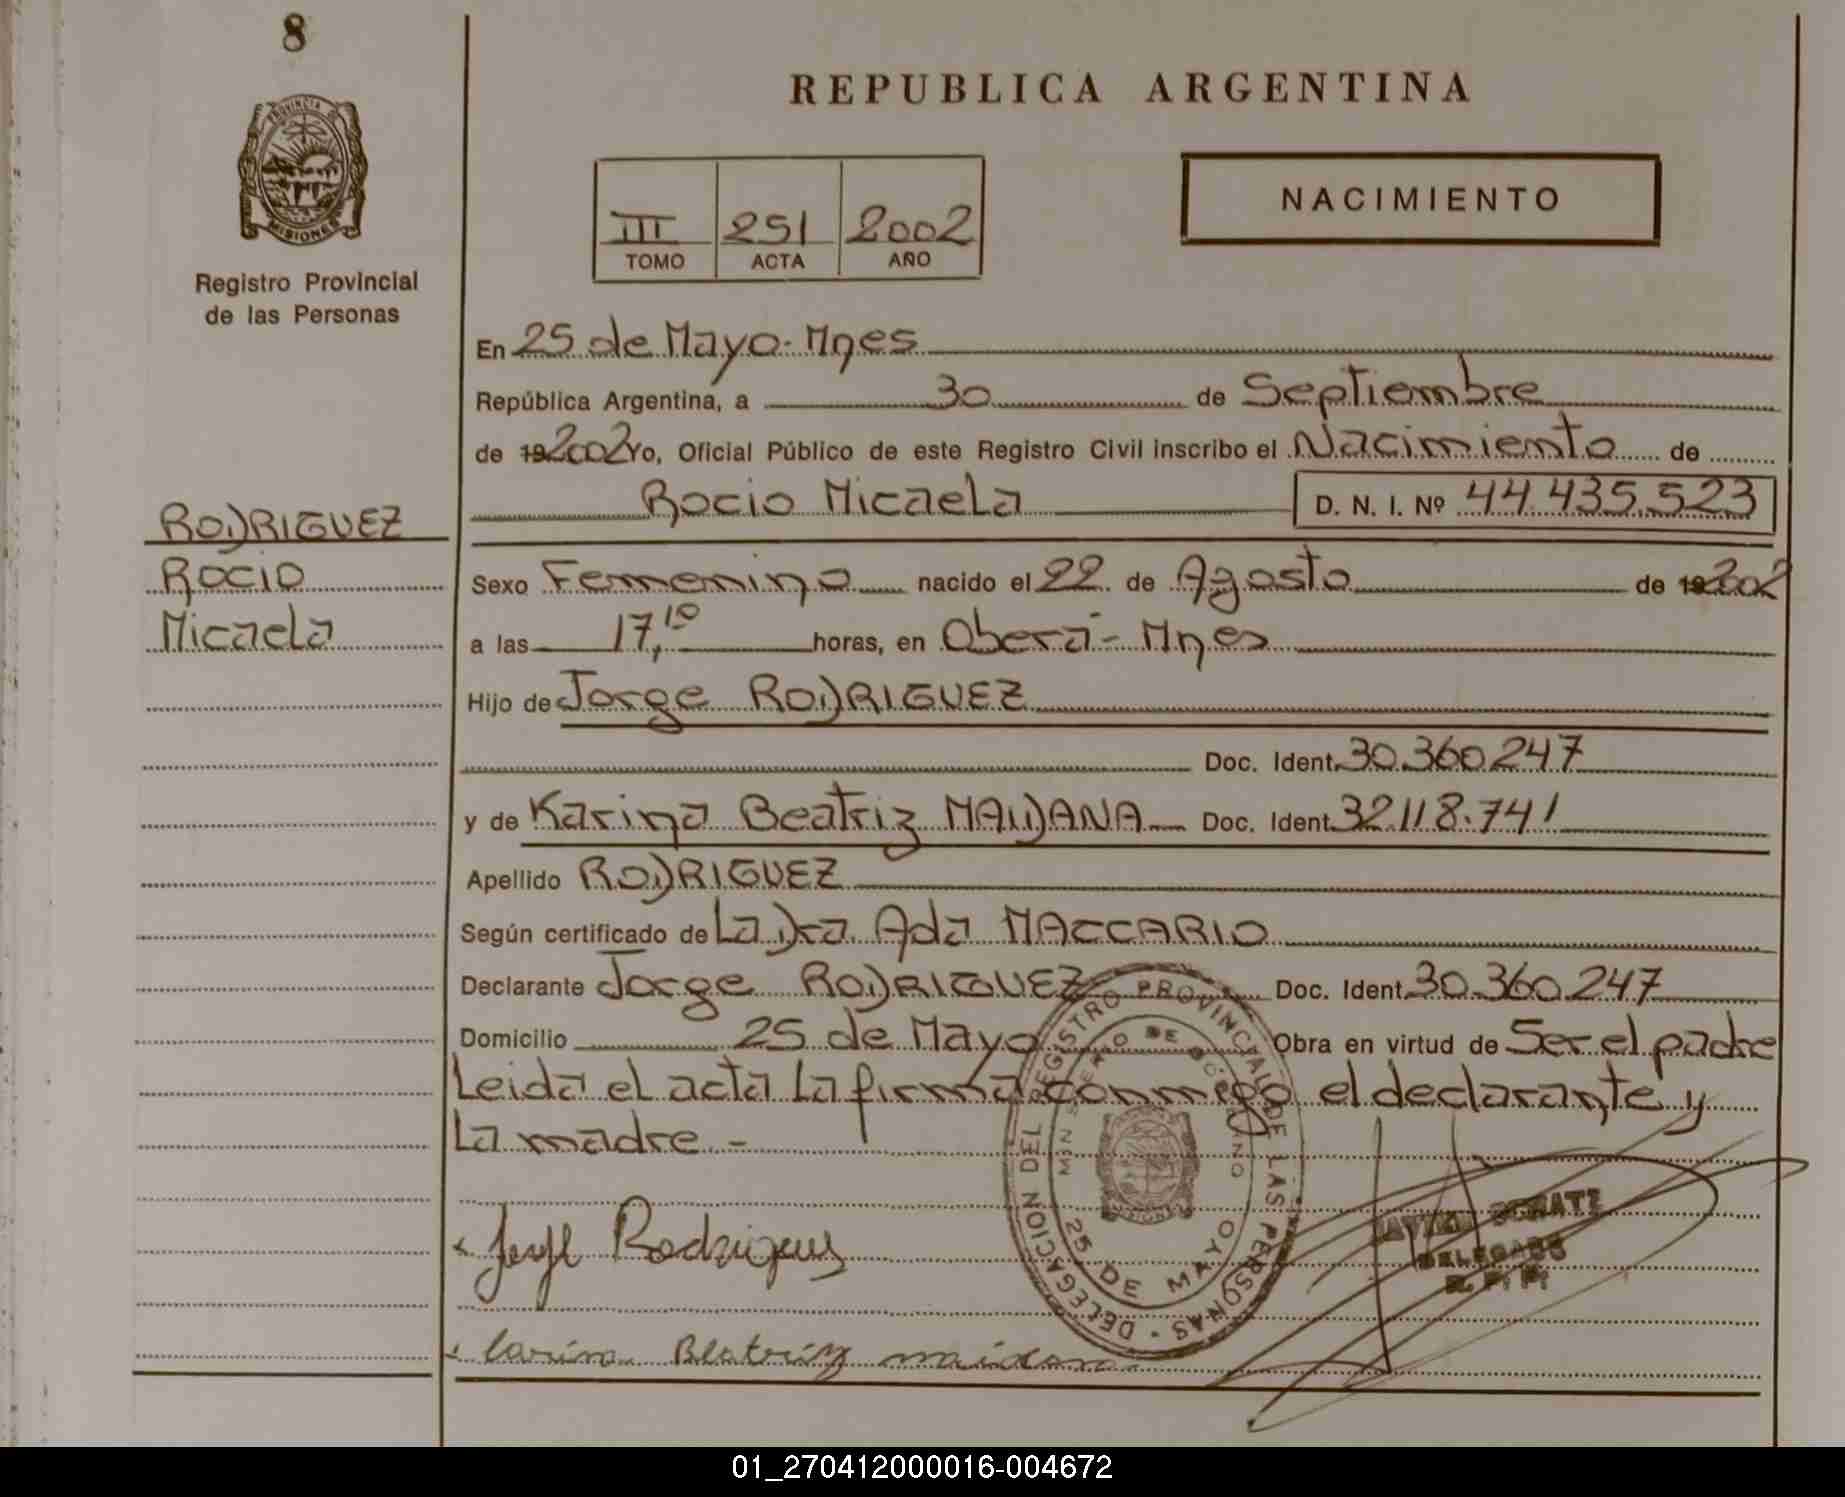 8
REPUBLICA ARGENTINA
PROVINCIA DE
MISIONES
Registro Provincial
de las Personas
III 251 2002
TOMO ACTA AÑO
NACIMIENTO
En 25 de Mayo - Mnes
República Argentina, a 30 de Septiembre
de 19 2002 Yo, Oficial Público de este Registro Civil inscribo el Nacimiento de
Rocio Micaela D. N. I. Nº 44.435.523
RODRIGUEZ
Rocio
Micaela
Sexo Femenino nacido el 22 de Agosto de 19 2002
a las 17,10 horas, en Oberá - Mnes
Hijo de Jorge RODRIGUEZ
Doc. Ident. 30.360.247
y de Karina Beatriz MAIDANA Doc. Ident. 32.118.741
Apellido RODRIGUEZ
Según certificado de La Dra. Ada MACCARIO
Declarante Jorge RODRIGUEZ Doc. Ident. 30.360.247
Domicilio 25 de Mayo Obra en virtud de Ser el padre
Leida el acta La firma conmigo el declarante y
La madre -
DELEGACION DEL REGISTRO PROVINCIAL DE LAS PERSONAS
MINISTERIO DE GOBIERNO
25 DE MAYO
MISIONES
Jorge Rodriguez
DELEGADO
R. P. P.
Carina Beatriz maidana
01_270412000016-004672